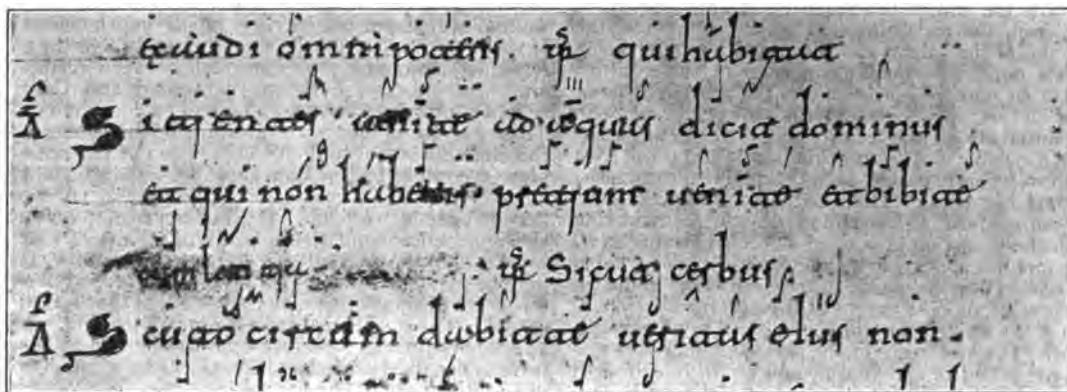 exaudi omnipotens. ps qui habitat
Sitientes venite ad aquas dicit dominus
et qui non habetis pretium venite et bibite
ps Sicut cerbus.
Scuto circum dabit te veritas eius non